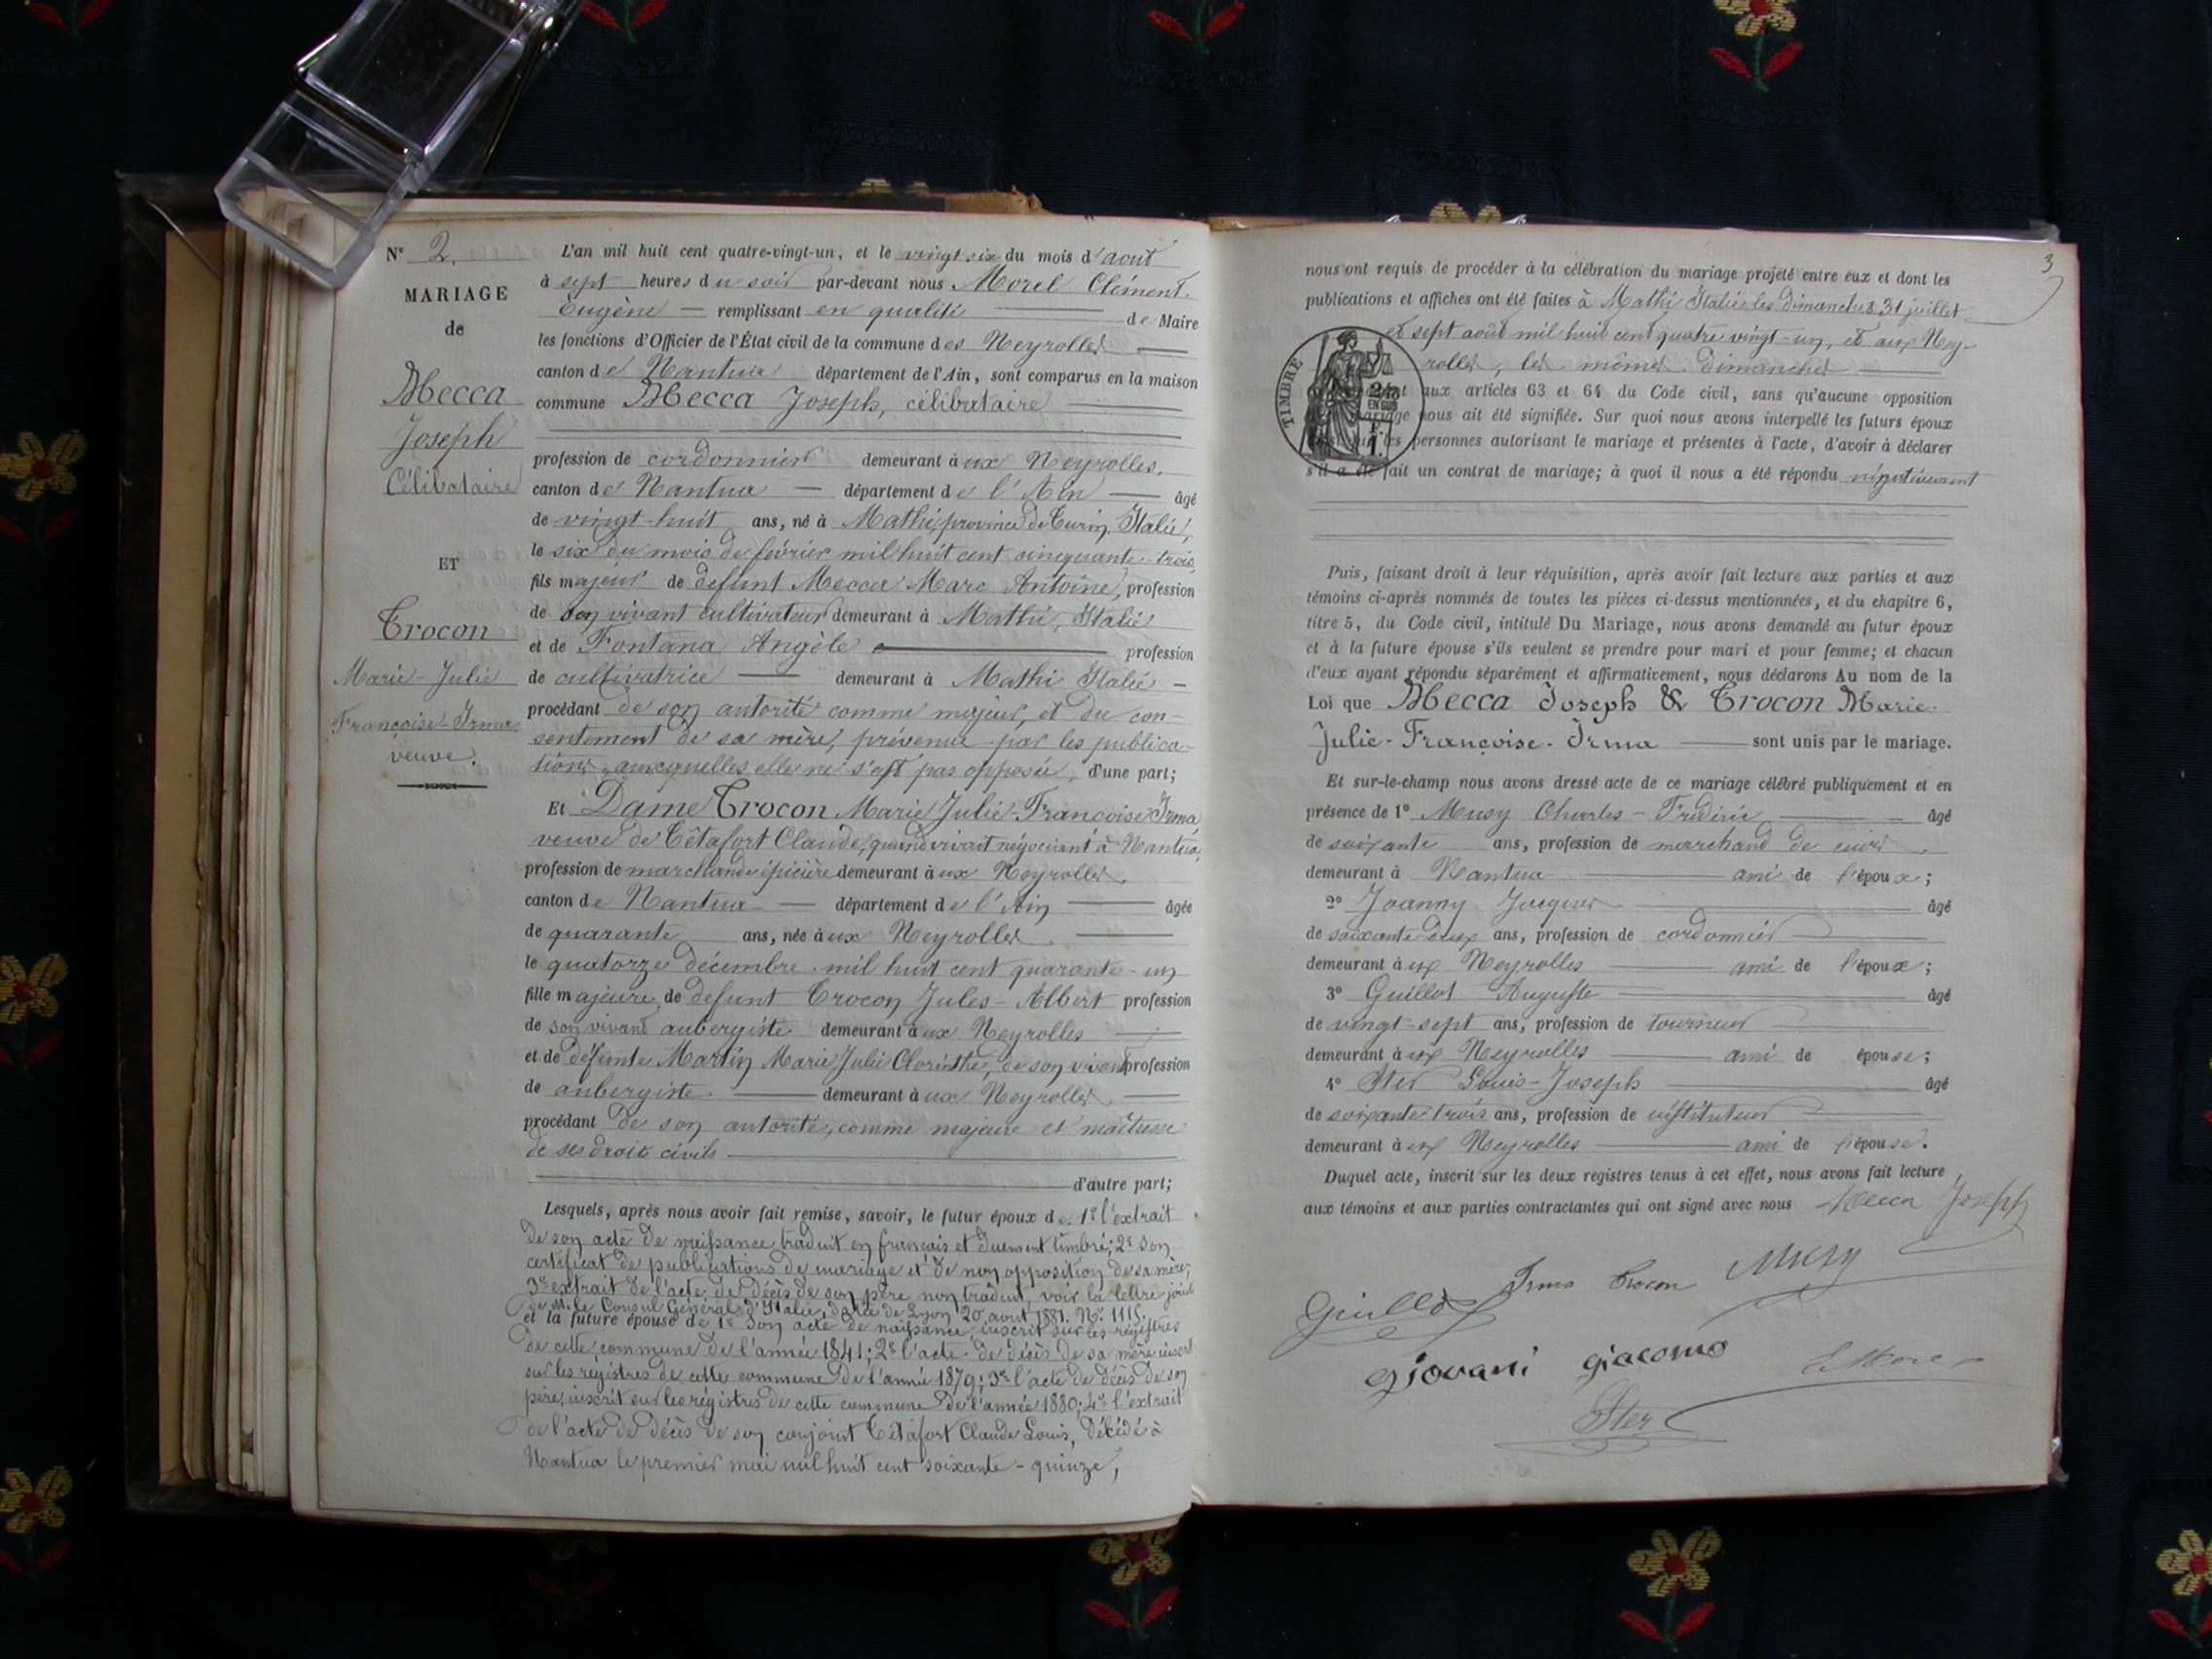 N° 2.
MARIAGE
de
Mecca
Joseph
Célibataire
ET
Trocon
Marie-Julie
Françoise-Irma
veuve.
L'an mil huit cent quatre-vingt-un, et le vingt six du mois d'août
à sept heures du soir par-devant nous Morel Clément-
Eugène — remplissant en qualité de Maire
les fonctions d'Officier de l'État civil de la commune des Neyrolles
canton de Nantua département de l'Ain, sont comparus en la maison
commune Mecca Joseph, célibataire
profession de cordonnier demeurant aux Neyrolles,
canton de Nantua — département de l'Ain — âgé
de vingt-huit ans, né à Mathi province de Turin, Italie,
le six du mois de février mil huit cent cinquante-trois,
fils majeur de défunt Mecca Marc Antoine, profession
de son vivant cultivateur demeurant à Mathi, Italie
et de Fontana Angèle profession
de cultivatrice — demeurant à Mathi Italie -
procédant de son autorité comme majeur, et du con-
sentement de sa mère, prévenue par les publica-
tions auxquelles elle ne s'est pas opposée, d'une part;
Et Dame Trocon Marie Julie-Françoise Irma
veuve de Têtafort Claude, quand vivait négociant à Nantua,
profession de marchande épicière demeurant aux Neyrolles,
canton de Nantua — département de l'Ain — âgée
de quarante ans, née aux Neyrolles
le quatorze décembre mil huit cent quarante-un
fille majeure de défunt Trocon Jules-Albert profession
de son vivant aubergiste demeurant aux Neyrolles
et de défunte Martin Marie Julie Clorinthe, de son vivant profession
de aubergiste — demeurant aux Neyrolles
procédant de son autorité, comme majeure et maîtresse
de ses droits civils
d'autre part;
Lesquels, après nous avoir fait remise, savoir, le futur époux de 1° l'extrait
de son acte de naissance traduit en français et duement timbré; 2° son
certificat de publications de mariage et de non opposition de sa mère;
3° extrait de l'acte de décès de son père non traduit, voir la lettre jointe
de M. le Consul Général d'Italie, datée de Lyon 20 août 1881. N° 1115.
et la future épouse de 1° son acte de naissance, inscrit sur les registres
de cette commune de l'année 1841; 2° l'acte de décès de sa mère inscrit
sur les régistres de cette commune de l'année 1879; 3° l'acte de décès de son
père, inscrit sur les régistres de cette commune de l'année 1880; 4° l'extrait
de l'acte de décès de son conjoint Têtafort Claude Louis, décédé à
Nantua le premier mai mil huit cent soixante-quinze,
3
nous ont requis de procéder à la célébration du mariage projeté entre eux et dont les
publications et affiches ont été faites à Mathi Italie les dimanches 31 juillet
et sept août mil huit cent quatre vingt-un, et aux Ney-
rolles, les mêmes dimanches
TIMBRE
aux articles 63 et 64 du Code civil, sans qu'aucune opposition
mariage nous ait été signifiée. Sur quoi nous avons interpellé les futurs époux
les personnes autorisant le mariage et présentes à l'acte, d'avoir à déclarer
s'il a été fait un contrat de mariage; à quoi il nous a été répondu négativement
Puis, faisant droit à leur réquisition, après avoir fait lecture aux parties et aux
témoins ci-après nommés de toutes les pièces ci-dessus mentionnées, et du chapitre 6,
titre 5, du Code civil, intitulé Du Mariage, nous avons demandé au futur époux
et à la future épouse s'ils veulent se prendre pour mari et pour femme; et chacun
d'eux ayant répondu séparément et affirmativement, nous déclarons Au nom de la
Loi que Mecca Joseph & Trocon Marie-
Julie-Françoise-Irma — sont unis par le mariage.
Et sur-le-champ nous avons dressé acte de ce mariage célébré publiquement et en
présence de 1° Musy Charles-Frédéric âgé
de soixante ans, profession de marchand de cuirs
demeurant à Nantua ami de l'époux;
2° Joanny Jacques âgé
de soixante deux ans, profession de cordonnier
demeurant aux Neyrolles ami de l'époux;
3° Guillot Auguste âgé
de vingt-sept ans, profession de tourneur
demeurant aux Neyrolles ami de épouse;
4° Ster Louis-Joseph âgé
de soixante trois ans, profession de instituteur
demeurant aux Neyrolles ami de l'épouse.
Duquel acte, inscrit sur les deux registres tenus à cet effet, nous avons fait lecture
aux témoins et aux parties contractantes qui ont signé avec nous Mecca Joseph
Irma Trocon Musy
Guillot
giovani giacomo
Ster